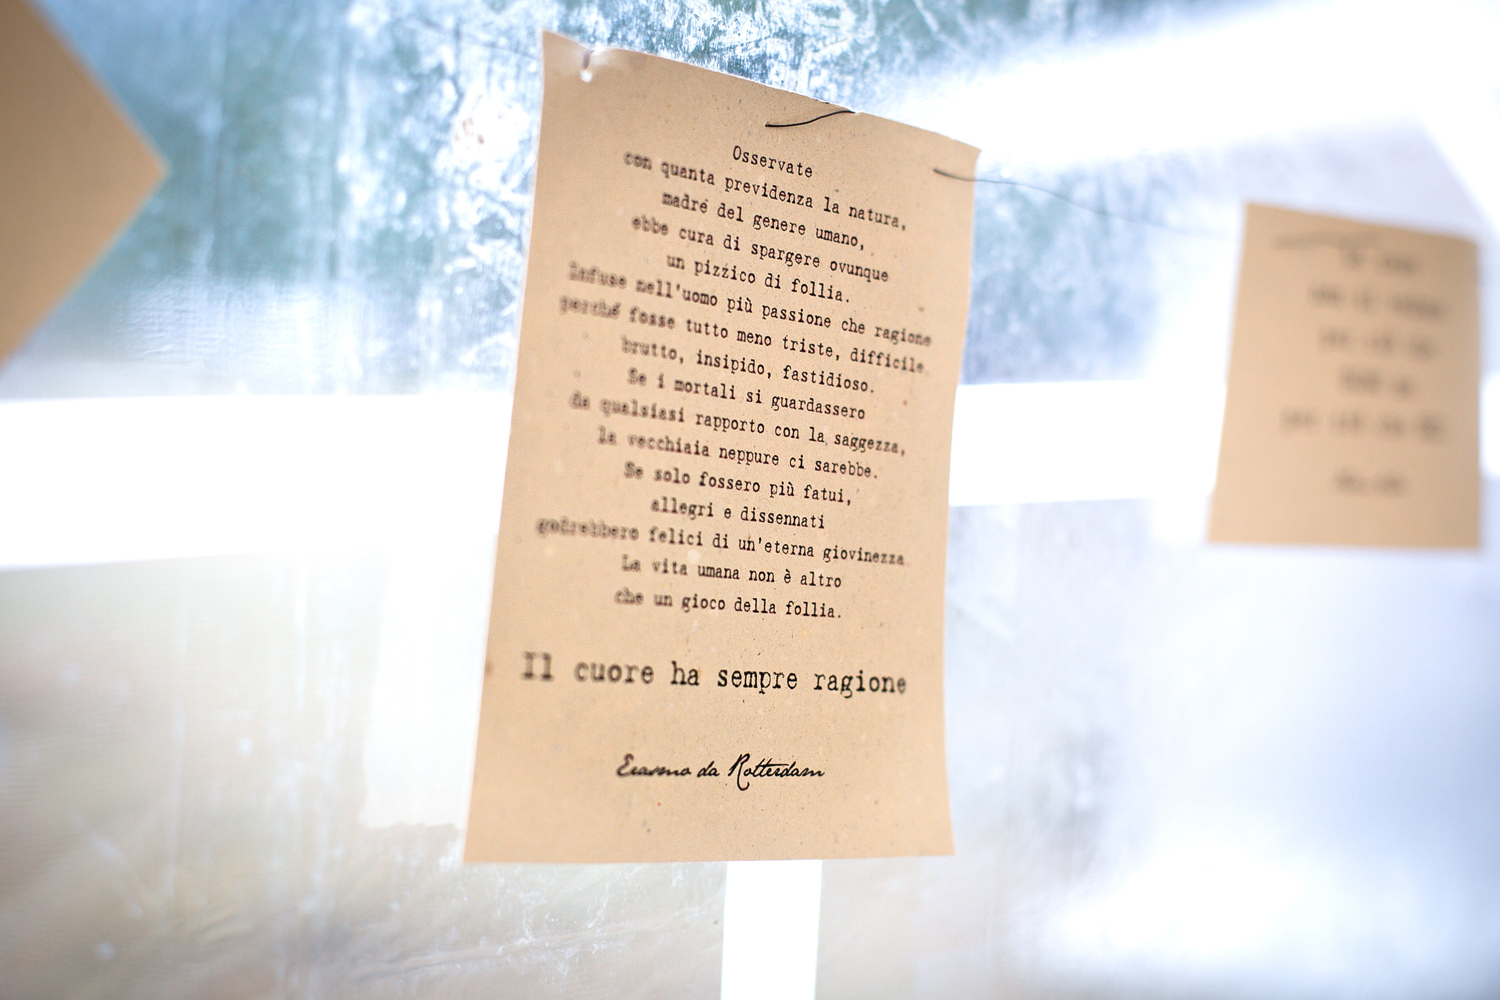 Osservate
con quanta previdenza la natura,
madre del genere umano,
ebbe cura di spargere ovunque
un pizzico di follia.
Infuse nell'uomo più passione che ragione
perché fosse tutto meno triste, difficile,
brutto, insipido, fastidioso.
Se i mortali si guardassero
da qualsiasi rapporto con la saggezza,
la vecchiaia neppure ci sarebbe.
Se solo fossero più fatui,
allegri e dissennati
godrebbero felici di un'eterna giovinezza.
La vita umana non è altro
che un gioco della follia.
Il cuore ha sempre ragione
Erasmo da Rotterdam